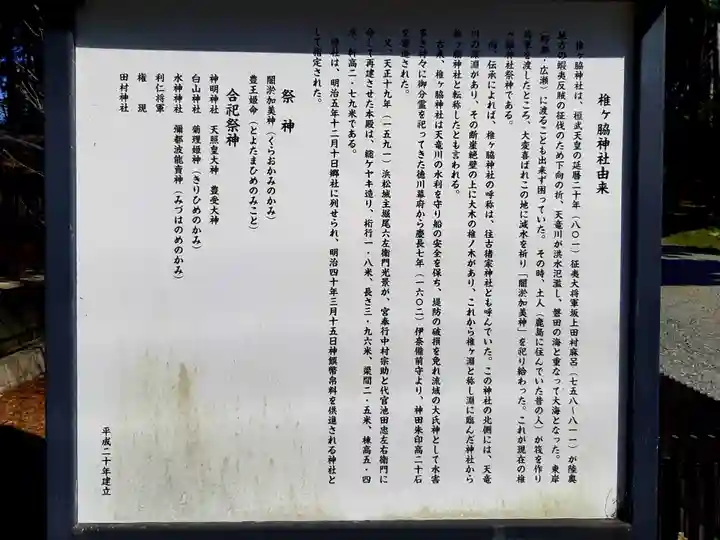 椎ヶ脇神社由来
椎ヶ脇神社は、桓武天皇の延暦二十年(八〇一)征夷大将軍坂上田村麻呂(七五八~八一一)が陸奥
地方の蝦夷反賊の征伐のため下向の折、天竜川が洪水氾濫し、磐田の海と重なって大海となった。東岸
(野部・広瀬)に渡ることも出来ず困っていた。その時、土人(鹿島に住んでいた昔の人)が筏を作り
将軍を渡したところ、大変喜ばれこの地に減水を祈り「闇淤加美神」を祀り給わった。これが現在の椎
ヶ脇神社祭神である。
尚、伝承によれば、椎ヶ脇神社の呼称は、往古猪家神社とも呼んでいた。この神社の北側には、天竜
川の深淵があり、その断崖絶壁の上に大木の椎ノ木があり、これから椎ヶ淵と称し淵に臨んだ神社から
椎ヶ脇神社と転称したとも言われる。
古来、椎ヶ脇神社は天竜川の水利を守り船の安全を保ち、堤防の破損を免れ流域の大氏神として水害
多き村々に御分霊を祀ってきた徳川幕府から慶長七年(一六〇二)伊奈備前守より、神田朱印高二十石
を寄進された。
又、天正十九年(一五九一)浜松城主堀尾六左衛門光景が、宮奉行中村宗助と代官池田忠左右衛門に
命じて再建させた本殿は、総ケヤキ造り、桁行一・八米、長さ三・九六米、梁間二・五米、棟高五・四
米、軒高二・七九米である。
神社は、明治五年十二月十日郷社に列せられ、明治四十年三月十五日神饌幣帛料を供進される神社と
して指定された。
祭神
闇淤加美神(くらおかみのかみ)
豊玉姫命(とよたまひめのみこと)
合祀祭神
神明神社 天照皇大神 豊受大神
白山神社 菊理姫神(きりひめのかみ)
水神神社 彌都波能賣神(みづはのめのかみ)
利仁将軍
権現
田村神社
平成二十年建立